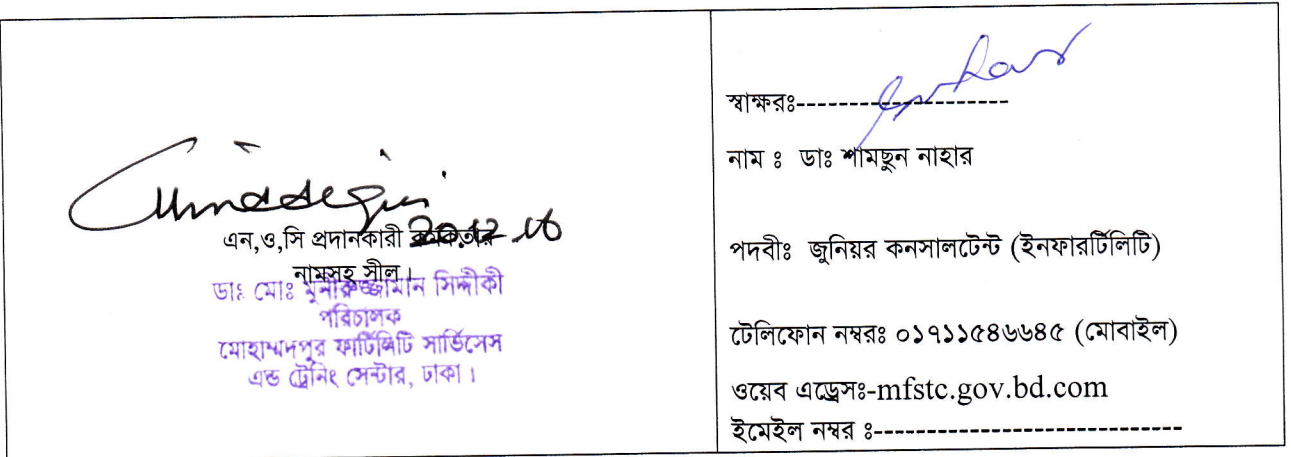 এন,ও,সি প্রদানকারী
20.12.16
নামসহ সীল।
ডাঃ মোঃ মুনীরুজ্জামান সিদ্দীকী
পরিচালক
মোহাম্মদপুর ফার্টিলিটি সার্ভিসেস
এন্ড ট্রেনিং সেন্টার, ঢাকা।
স্বাক্ষরঃ---------------------
নাম ঃ ডাঃ শামছুন নাহার
পদবীঃ জুনিয়র কনসালটেন্ট (ইনফারর্টিলিটি)
টেলিফোন নম্বরঃ ০১৭১১৫৪৬৬৪৫ (মোবাইল)
ওয়েব এড্রেসঃ-mfstc.gov.bd.com
ইমেইল নম্বর ঃ-----------------------------